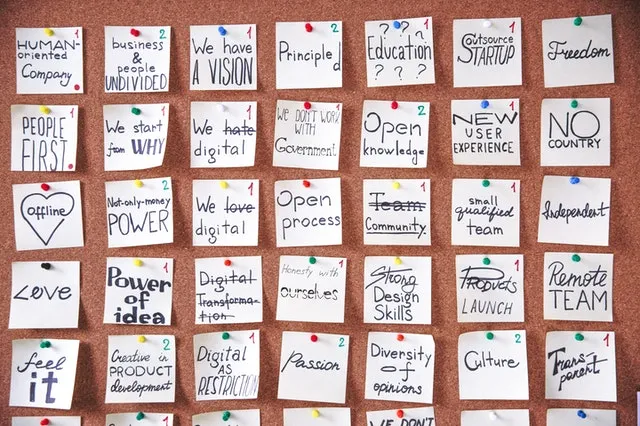 HUMAN-
oriented
Company
2
business
&
people
UNDIVIDED
1
We have
A VISION
2
Principled
2
Education
? ? ?
1
Outsource
STARTUP
Freedom
PEOPLE
FIRST.
1
We start
from WHY
We hate
digital
1
We DON'T WORK
WITH
Government
2
Open
knowledge
1
NEW
USER
EXPERIENCE
NO
COUNTRY
offline
2
Not-only-money
POWER
1
We love
digital
1
Open
process
1
Team
Community
1
small
qualified
team
Independent
Love
Power
of
idea
1
Digital
Transforma-
tion
1
Honesty with
ourselves
Strong
Design
Skills
1
Products
LAUNCH
Remote
TEAM
feel
it
2
Creative in
PRODUCT
development
1
Digital
AS
RESTRICTION
2
Passion
Diversity
of
opinions
2
Culture
1
Transparent
WE DON'T